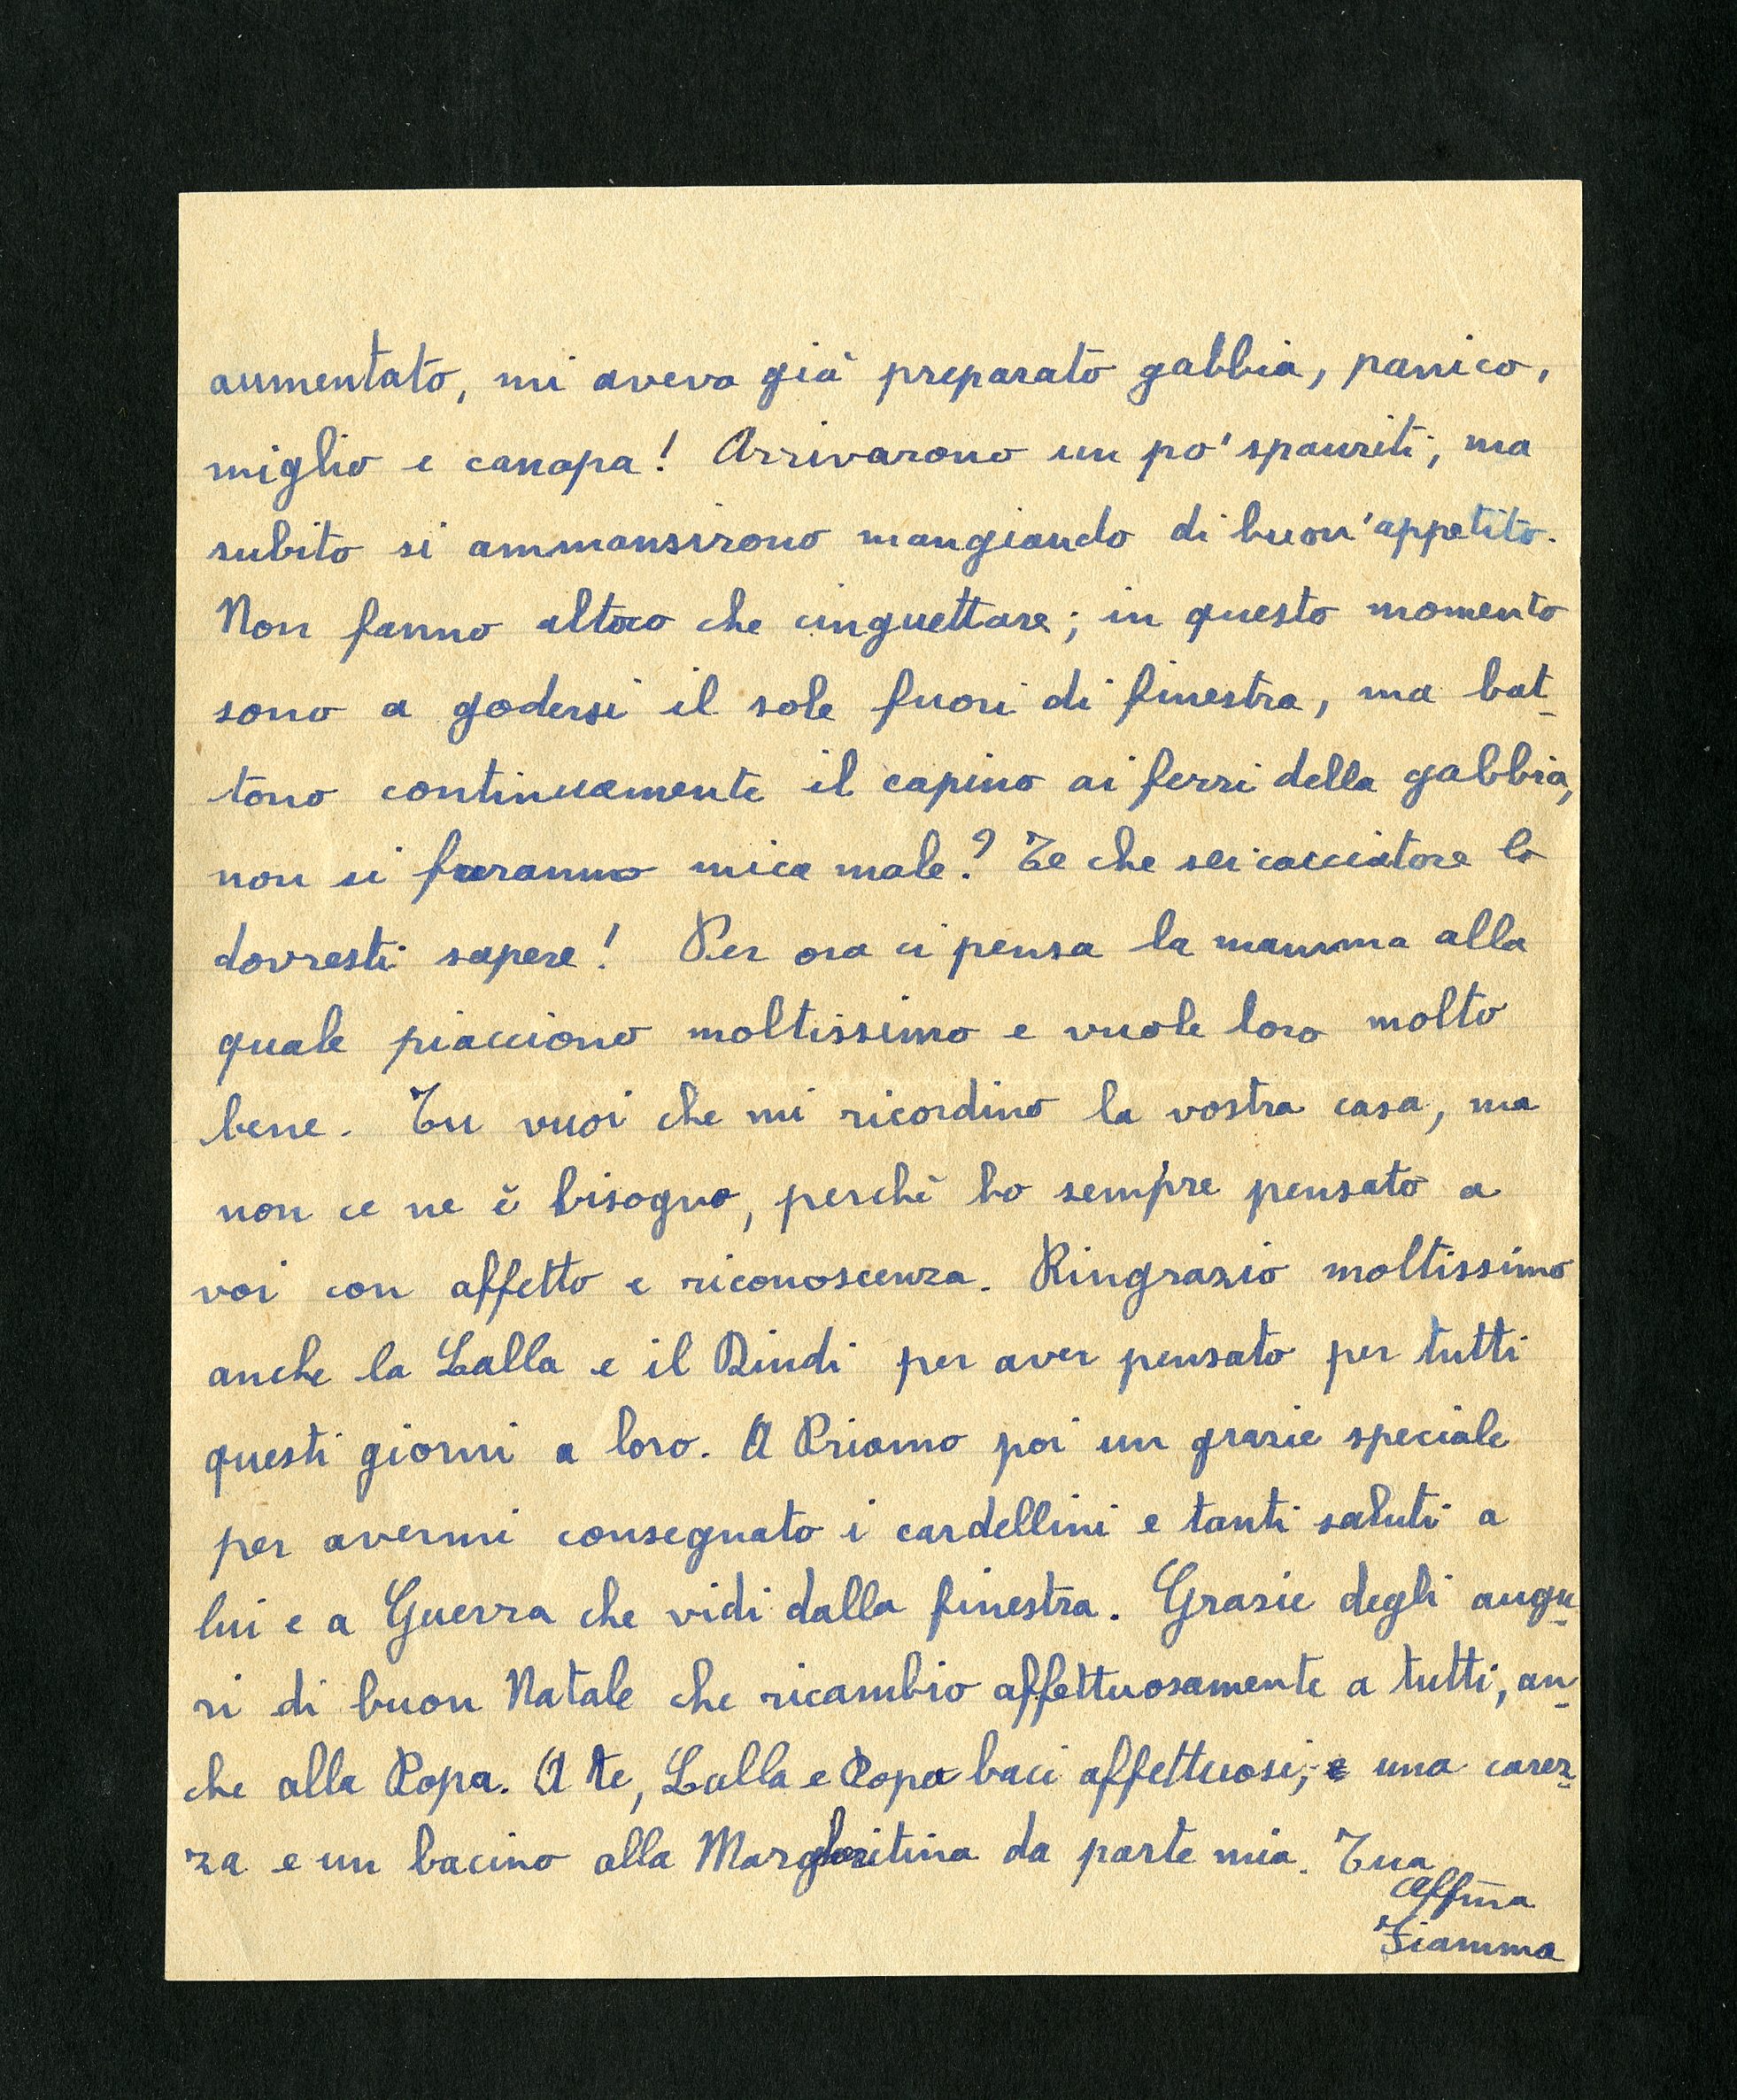 aumentato, mi aveva già preparato gabbia, panico,
miglio e canapa! Arrivarono un po' spauriti, ma
subito si ammansirono mangiando di buon'appetito.
Non fanno altro che cinguettare; in questo momento
sono a godersi il sole fuori di finestra, ma bat-
tono continuamente il capino ai ferri della gabbia,
non si faranno mica male? Te che sei cacciatore lo
dovresti sapere! Per ora ci pensa la mamma alla
quale piacciono moltissimo e vuole loro molto
bene. Tu vuoi che mi ricordino la vostra casa, ma
non ce ne è bisogno, perchè ho sempre pensato a
voi con affetto e riconoscenza. Ringrazio moltissimo
anche la Lalla e il Dindi per aver pensato per tutti
questi giorni a loro. A Priamo poi un grazie speciale
per avermi consegnato i cardellini e tanti saluti a
lui e a Guerra che vidi dalla finestra. Grazie degli augu-
ri di buon Natale che ricambio affettuosamente a tutti, an-
che alla Popa. A te, Lalla e Popa baci affettuosi, e una carez-
za e un bacino alla Margheritina da parte mia. Tua
Aff.ma
Fiamma